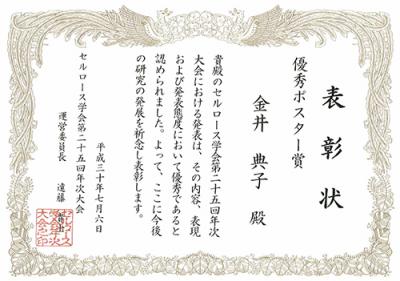 表彰状
優秀ポスター賞
金井 典子 殿
貴殿のセルロース学会第二十五回年次
大会における発表は、その内容、表現
および発表態度において優秀であると
認められました。よって、ここに今後
の研究の発展を祈念し表彰します。
平成三十年七月六日
セルロース学会第二十五回年次大会
運営委員長 遠藤